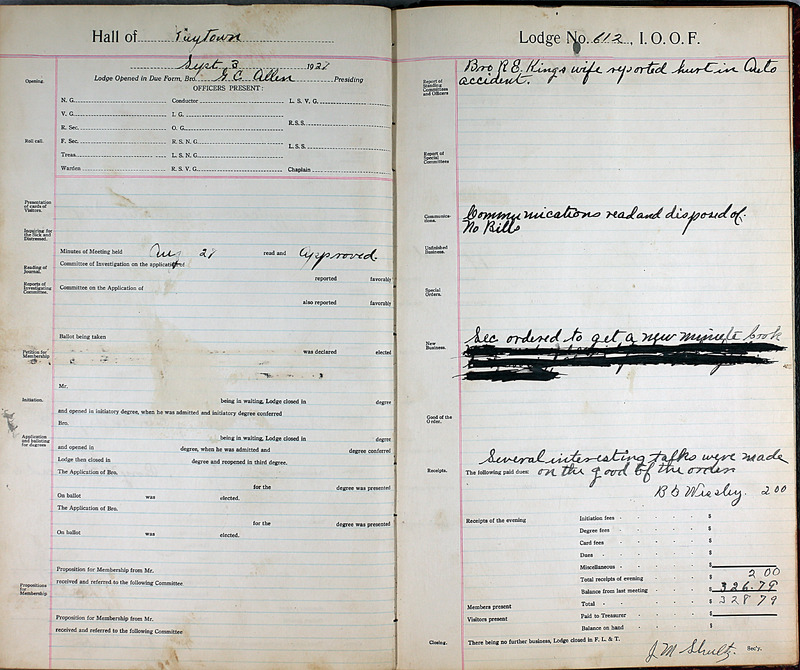 Hall of Kaytown
Sept 3 1927
Opening. Lodge Opened in Due Form, Bro. G. C. Allen Presiding
OFFICERS PRESENT:
N. G. Conductor L. S. V. G.
V. G. I. G.
R. Sec. O. G. R.S.S.
Roll call. F. Sec. R. S. N. G. L.S.S.
Treas. L. S. N. G.
Warden R. S. V. G. Chaplain
Presentation of cards of Visitors.
Inquiring for the Sick and Distressed.
Minutes of Meeting held Aug 27 read and approved.
Reading of Journal. Committee of Investigation on the application of
reported favorably
Reports of Investigating Committee. Committee on the Application of
also reported favorably
Ballot being taken
Petition for Membership was declared elected
Mr.
Initiation. being in waiting, Lodge closed in degree
and opened in initiatory degree, when he was admitted and initiatory degree conferred
Bro.
Application and balloting for degrees being in waiting, Lodge closed in degree
and opened in degree, when he was admitted and degree conferred
Lodge then closed in degree and reopened in third degree.
The Application of Bro.
for the degree was presented
On ballot was elected.
The Application of Bro.
for the degree was presented
On ballot was elected.
Proposition for Membership from Mr.
Propositions for Membership received and referred to the following Committee
Proposition for Membership from Mr.
received and referred to the following Committee
Lodge No. 612, I. O. O. F.
Report of Standing Committees and Officers Bro R E Kings wife reported hurt in Auto
accident.
Report of Special Committees
Communications. Communications read and disposed of.
No Bills
Unfinished Business.
Special Orders.
New Business. Sec ordered to get a new minute book
Good of the Order.
Several interesting talks were made
Receipts. The following paid dues: on the good of the order
2 00
Receipts of the evening Initiation fees $
Degree fees $
Card fees $
Dues $
Miscellaneous $
Total receipts of evening 2 00
Balance from last meeting $ 326.79
Members present Total $ 328 79
Visitors present Paid to Treasurer $
Balance on hand $
Closing. There being no further business, Lodge closed in F. L. & T.
J. M Shultz. Sec'y.